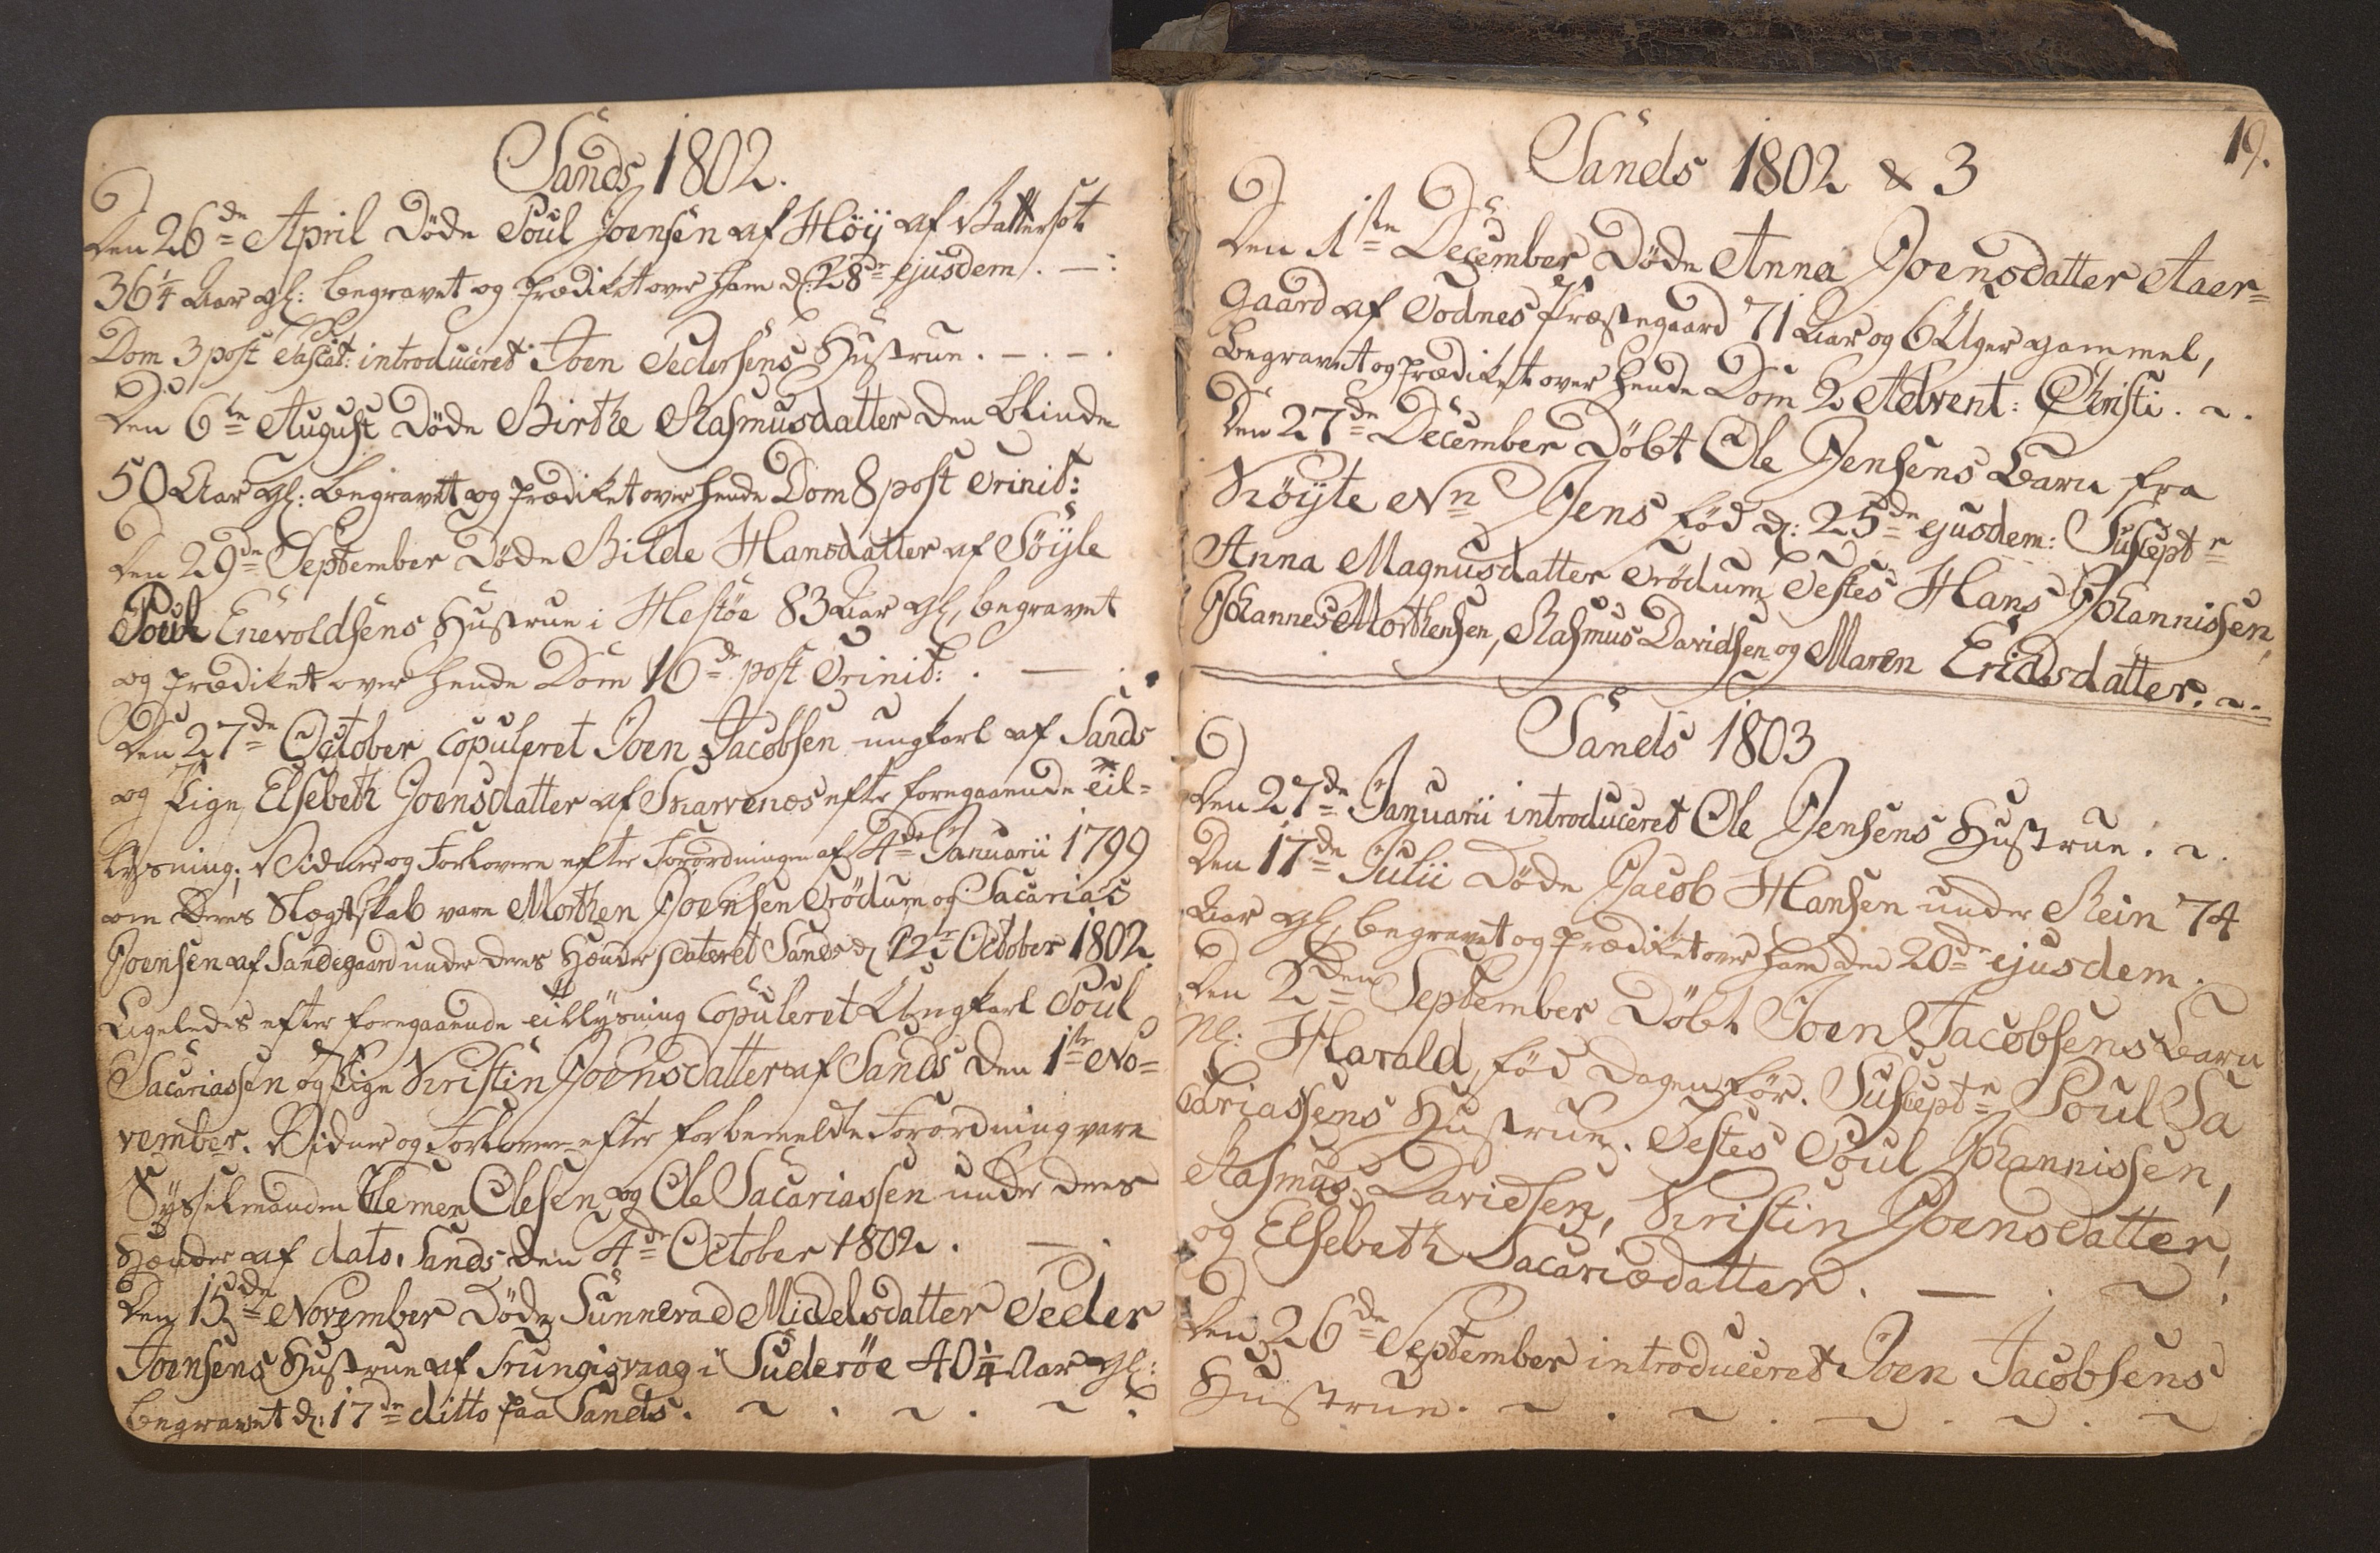 Sands 1802.
Den 26de April Døde Poul Joensen af Høij af Vattersot
36 1/4 Aar gl: begravet og prædiket over ham d: 28de ejusdem. —:
Dom 3 post Pascat: introduceret Joen Pedersens Hustrue. —. —.
Den 6te August Døde Birthe Rasmusdatter den blinde
50 Aar gl: begravet og prædiket over hende Dom 8 post Trinit:
Den 29de September Døde Bilde Hansdatter af Söijle
Poul Enevoldsens Hustrue i Hestöe 83 Aar gl, begravet
og prædiket over hende Dom 16de post Trinit: . — .
Den 27de October copuleret Joen Jacobsen ungkarl af Sands
og Pige Elsebeth Joensdatter af Skarvenæs efter foregaaende til-
lysning; Vidner og Forlovere efter Forordningen af 4de Januarii 1799
om deres Slægtskab vare Morthen Joensen Trödum og Sacarias
Joensen af Sandegaard under deres Hænder dateret Sands d 12te October 1802.
Ligeledes efter foregaaende tillysning Copuleret Ungkarl Poul
Sacariassen og Pige Kristin Joensdatter af Sands den 1ste No=
vember. Vidner og Forlovere efter forbemeldte Forordning vare
Sysselmanden Clemen Olesen og Ole Sacariassen under deres
Hænder af dato, Sands den 4de October 1802. — .
Den 15de November Døde Sunneva Michelsdatter Peder
Joensens Hustrue af Trungisvaag i Suderöe 40 1/4 Aar gl:
begravet d: 17de ditto paa Sands. ~ . ~ . ~ .
19.
Sands 1802 & 3
Den 1ste December Døde Anna Joensdatter Aaer=
gaard af Todnes Præstegaard 71 Aar og 6 Uger gammel,
begravet og prædiket over hende Dom 2 Advent: Christi. ~.
Den 27de December Døbt Ole Jensens Barn fra
Kröijte Nn Jens fød d: 25de ejusdem: Susceptr
Anna Magnusdatter Trödum, Testes Hans Johannissen,
Johannes Morthensen, Rasmus Davidsen og Maren Erichsdatter. ~.
Sands 1803
Den 27de Januarii introduceret Ole Jensens Hustrue. ~.
Den 17de Julii Døde Jacob Hansen under Rein 74
Aar gl, begravet og prædiket over ham den 20de ejusdem.
Den 2den September Døbt Joen Jacobsens Barn
Nl: Harald, fød Dagen før. Susceptr Poul Sa
cariassens Hustrue. Testes Poul Johannissen,
Rasmus Davidsen, Kristin Joensdatter,
og Elsebeth Sacariædatter. — . ~ .
Den 26de September introduceret Joen Jacobsens
Hustrue. ~ . ~ . ~ . ~ . ~